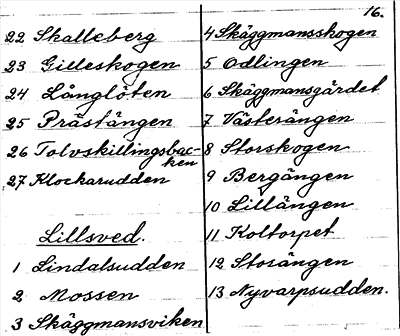 16.
22 Skalleberg
23 Gilleskogen
24 Långlöten
25 Prästängen
26 Tolvskillingsbac-
ken
27 Klockarudden
Lillsved.
1 Lindalsudden
2 Mossen
3 Skäggmansviken
4 Skäggmansskogen
5 Odlingen
6 Skäggmansgärdet
7 Västerängen
8 Storskogen
9 Bergängen
10 Lillängen
11 Koltorpet
12 Storängen
13 Nyvarpsudden.